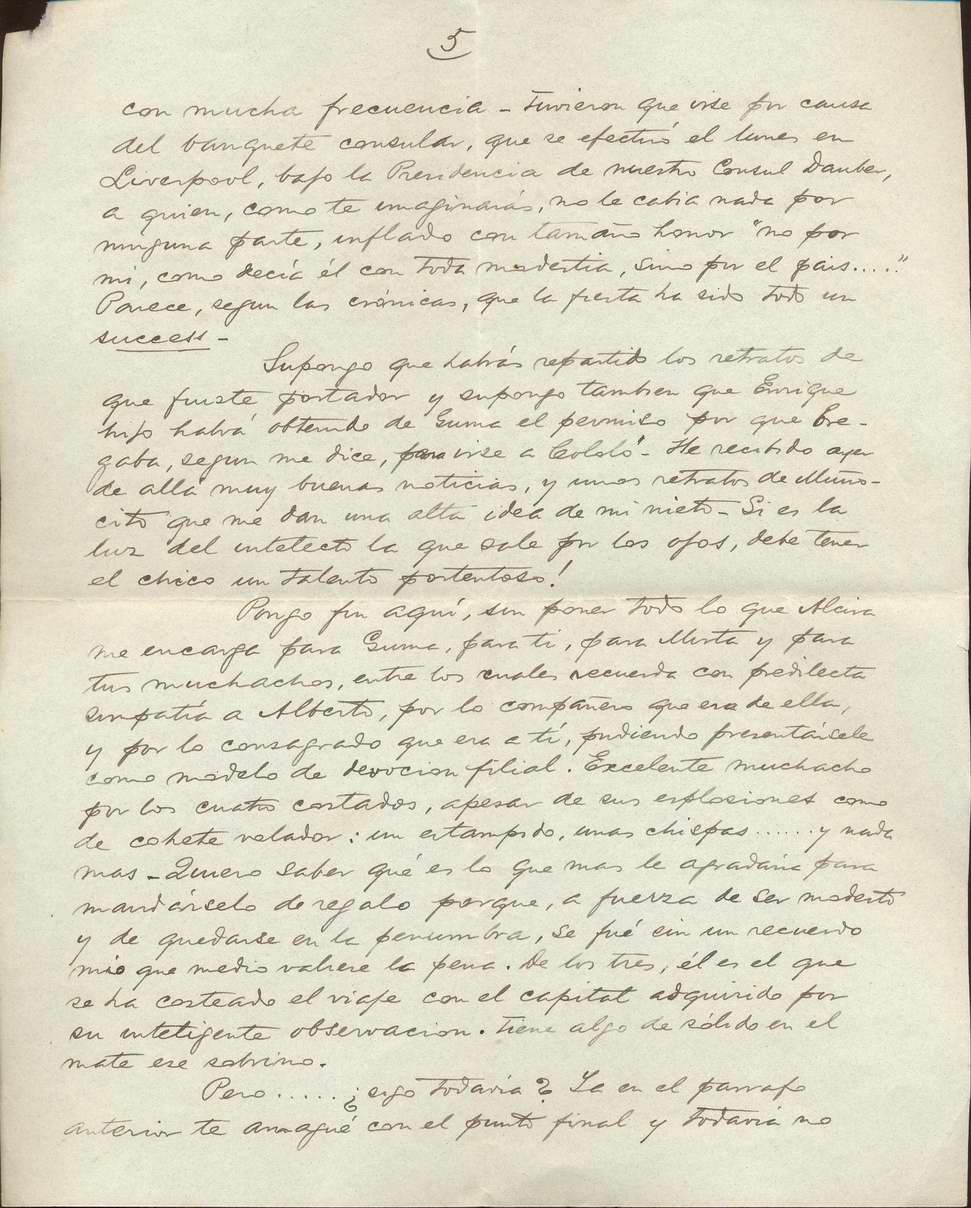 5
con mucha frecuencia - Tuvieron que irse por causa
del banquete consular, que se efectuó el lunes en
Liverpool, bajo la Presidencia de nuestro Consul Dauber,
a quien, como te imaginarás, no le cabia nada por
ninguna parte, inflado con tamaño honor "no por
mi, como decía él con toda modestia, sino por el pais....."
Parece, segun las crónicas, que la fiesta ha sido todo un
success -
Supongo que habrás repartido los retratos de
que fuiste portador y supongo tambien que Enrique
hijo habrá obtenido de Guma el permiso por que bre-
gaba, segun me dice, para irse a Cololó - He recibido ayer
de allá muy buenas noticias, y unos retratos de Muño-
cito que me dan una alta idea de mi nieto - Si es la
luz del intelecto la que sale por los ojos, debe tener
el chico un talento portentoso!
Pongo fin aquí, sin poner todo lo que Alcira
me encarga para Guma, para ti, para Mirta y para
tus muchachos, entre los cuales recuerda con predilecta
simpatía a Alberto, por lo compañero que era de ella,
y por lo consagrado que era a tí, pudiendo presentársele
como modelo de devocion filial. Excelente muchacho
por los cuatro costados, apesar de sus esplosiones como
de cohete volador: un estampido, unas chispas...... y nada
mas - Quiero saber qué es lo que mas le agradaría para
mandárselo de regalo porque, a fuerza de ser modesto
y de quedarse en la penumbra, se fué sin un recuerdo
mio que medio valiese la pena. De los tres, él es el que
se ha costeado el viaje con el capital adquirido por
su inteligente observacion. Tiene algo de sólido en el
mate ese sobrino.
Pero...... ¿sigo todavia? Ya en el parrafo
anterior te amagué con el punto final y todavia no